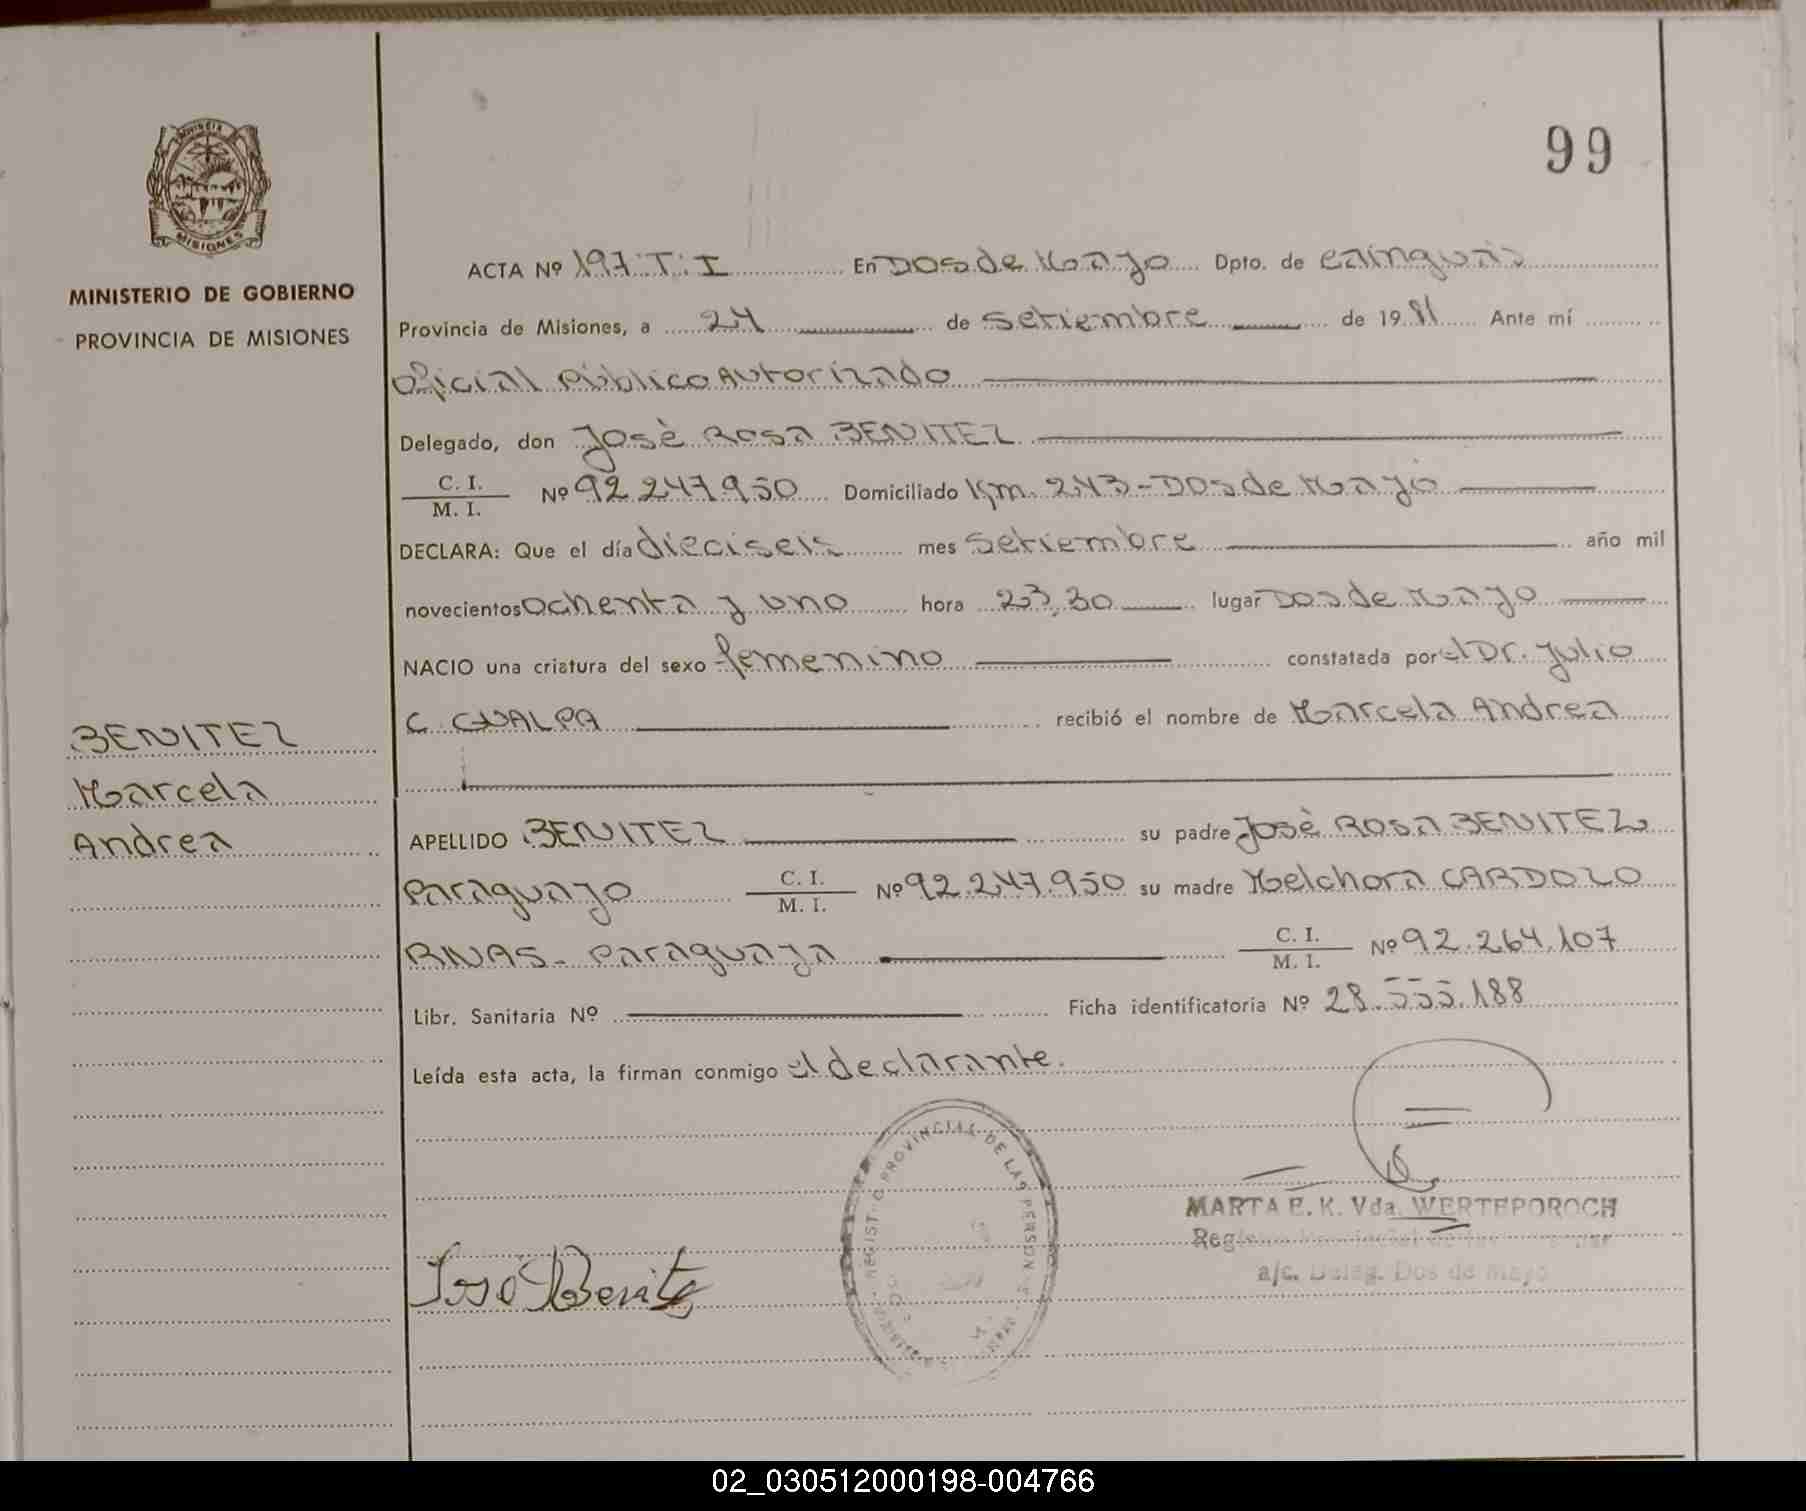 PROVINCIA
MISIONES
MINISTERIO DE GOBIERNO
PROVINCIA DE MISIONES
BENITEZ
Marcela
Andrea
99
ACTA Nº 197. T. I En Dos de Mayo Dpto. de Cainguás
Provincia de Misiones, a 24 de Setiembre de 1981 Ante mí
Oficial Público Autorizado
Delegado, don José Rosa BENITEZ
C. I.
M. I. Nº 92.247.950 Domiciliado Km. 243 - Dos de Mayo
DECLARA: Que el día dieciseis mes Setiembre año mil
novecientos ochenta y uno hora 23,30 lugar Dos de Mayo
NACIO una criatura del sexo femenino constatada por el Dr. Julio
C. GUALPA recibió el nombre de Marcela Andrea
APELLIDO BENITEZ su padre José Rosa BENITEZ
Paraguayo C. I.
M. I. Nº 92.247.950 su madre Melchora CARDOZO
RIVAS - Paraguaya C. I.
M. I. Nº 92.264.107
Libr. Sanitaria Nº Ficha identificatoria Nº 28.555.188
Leída esta acta, la firman conmigo el declarante.
PROVINCIAL DE LAS PERSONAS
MARTA E. K. Vda. WERTEPOROCH
a/c. Deleg. Dos de Mayo
José Benitez
02_030512000198-004766